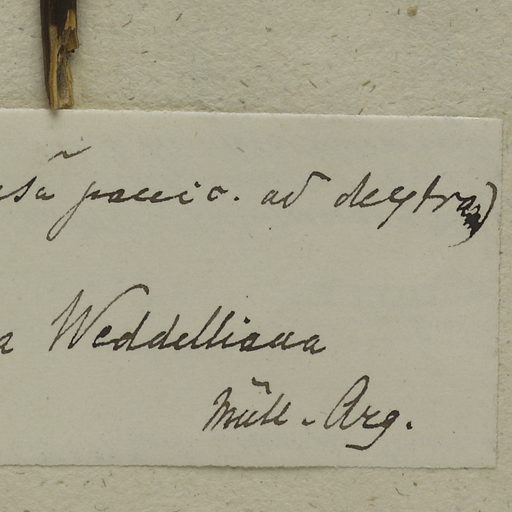 pauic. ad dextram)
a Weddelliana
Müll-Arg.